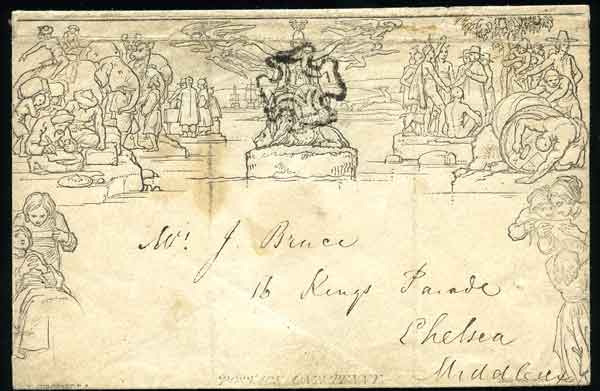 Mr. J Bruce
16 Kings Parade
Chelsea
Middlesex
POSTAGE ONE PENNY